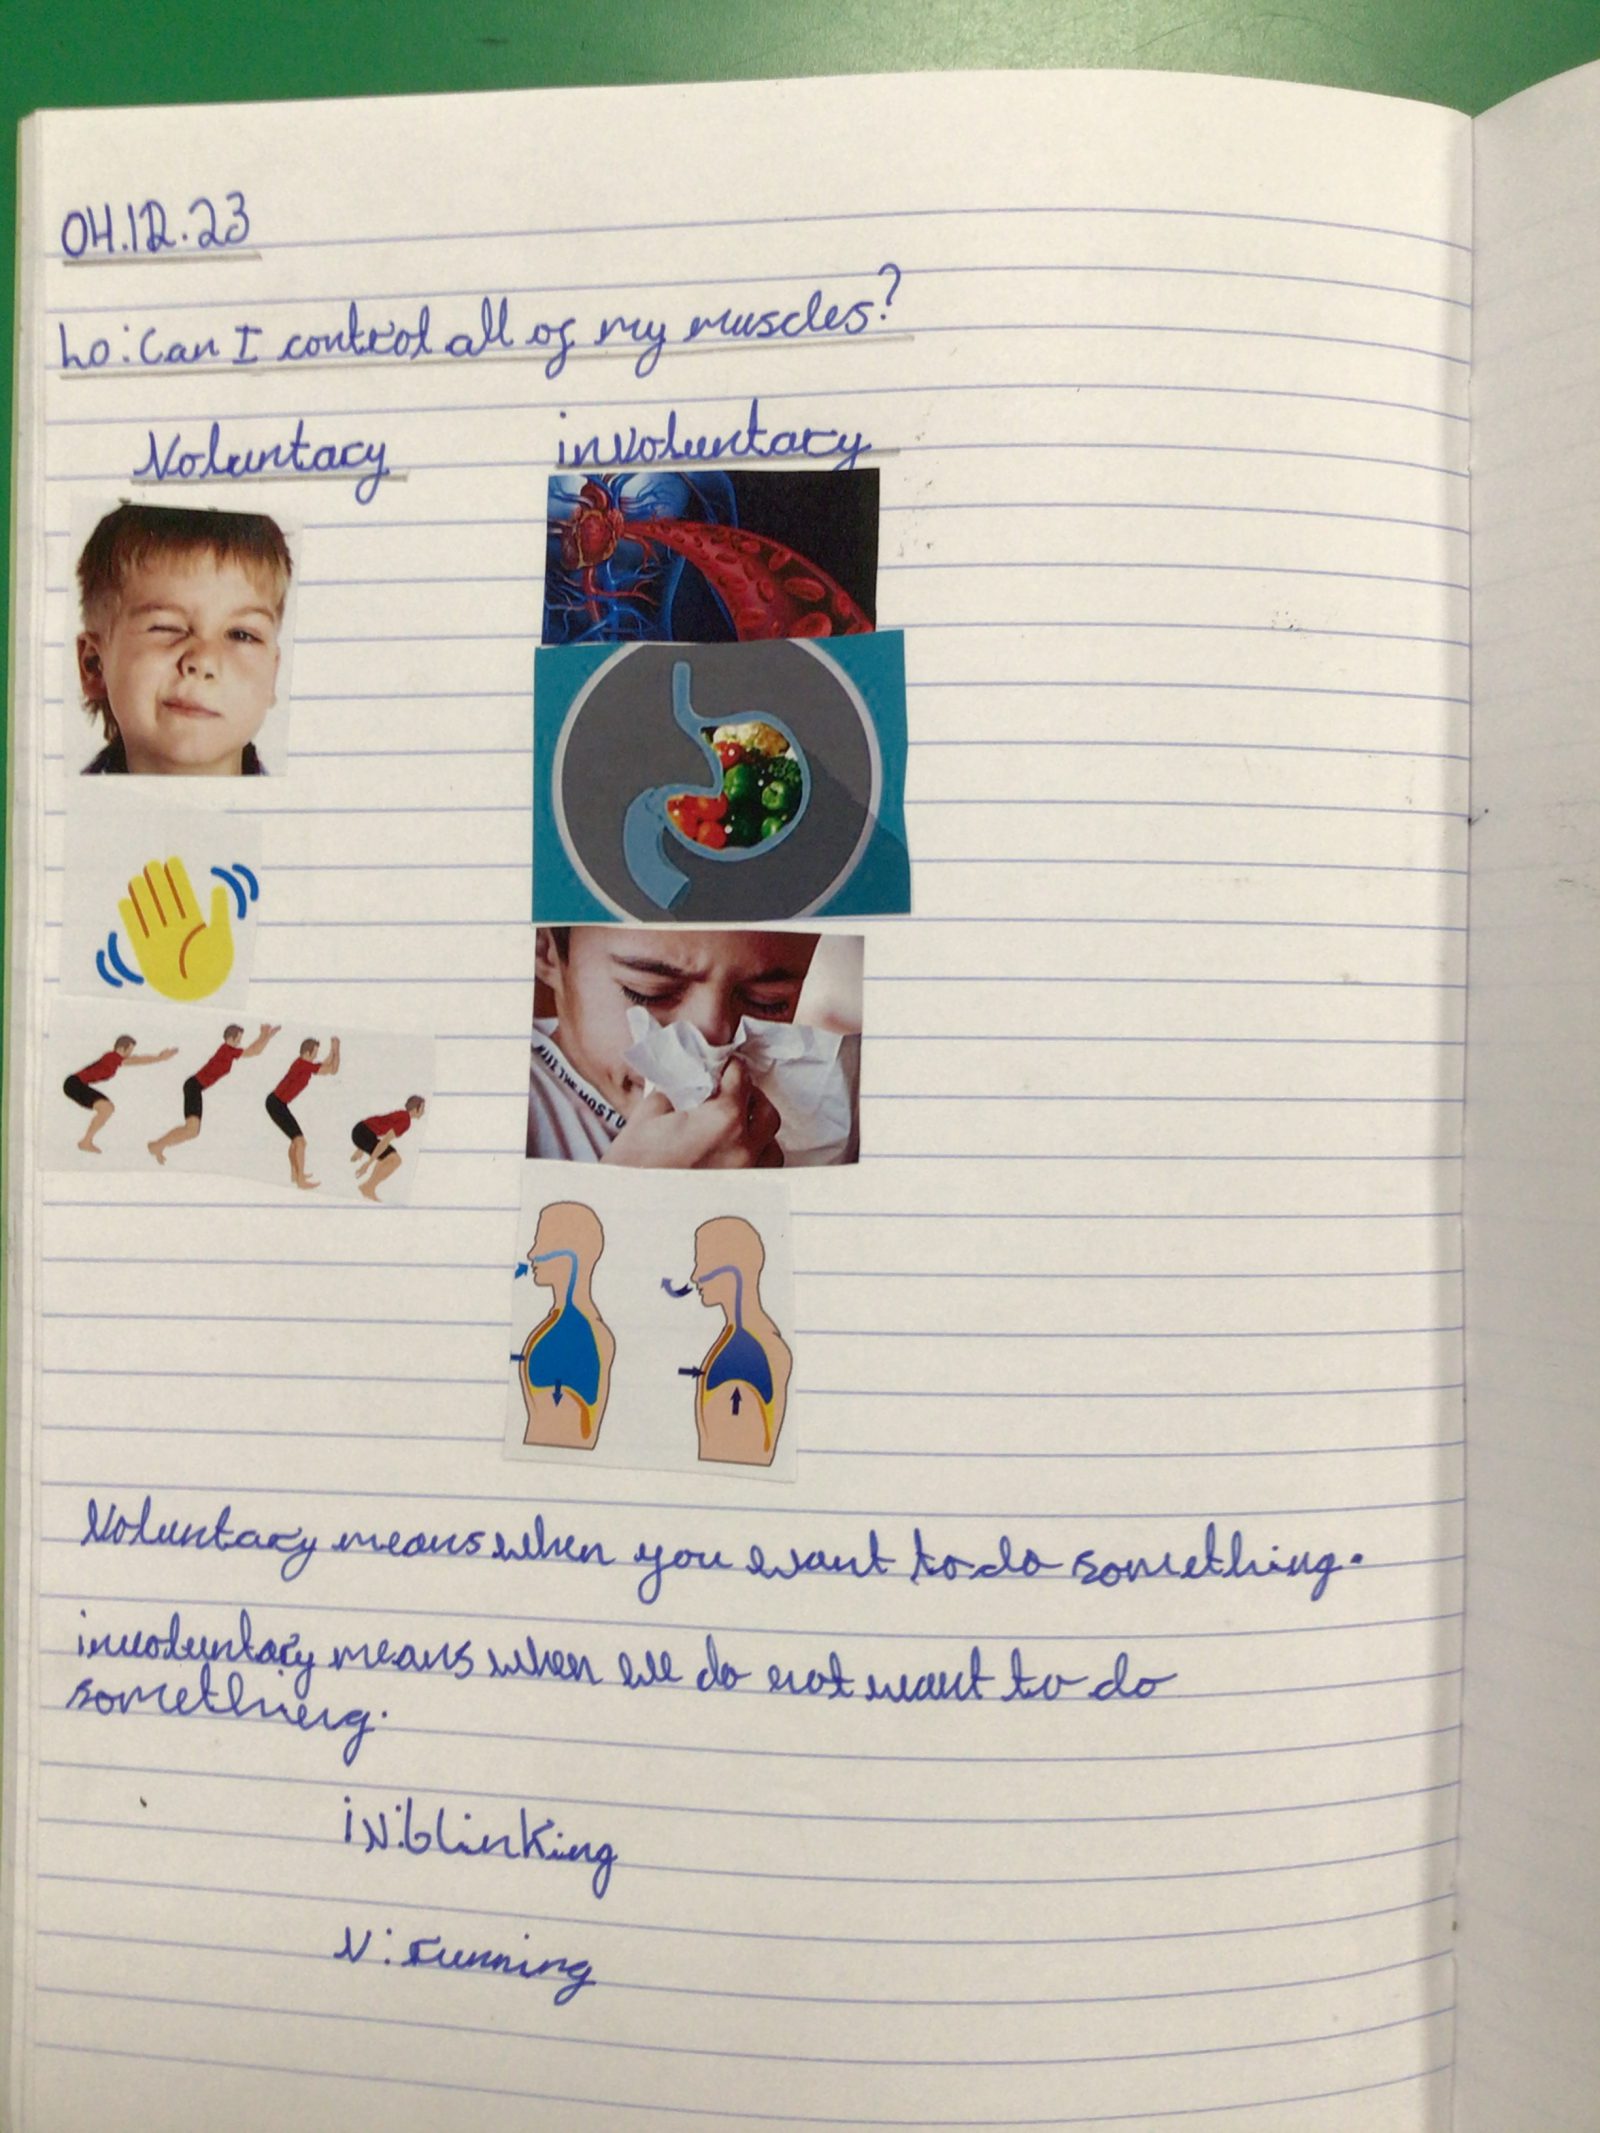 04.12.23
Lo: Can I control all of my muscles?
Voluntary
involuntary
ALL THE MOST U
Voluntary means when you want to do something.
involuntary means when we do not want to do
something.
iV: blinking
V: running